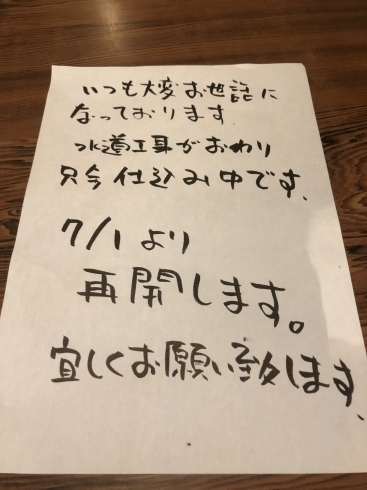 いつも大変お世話に
なっております
水道工事がおわり
只今仕込み中です、
7/1より
再開します。
宜しくお願い致します、